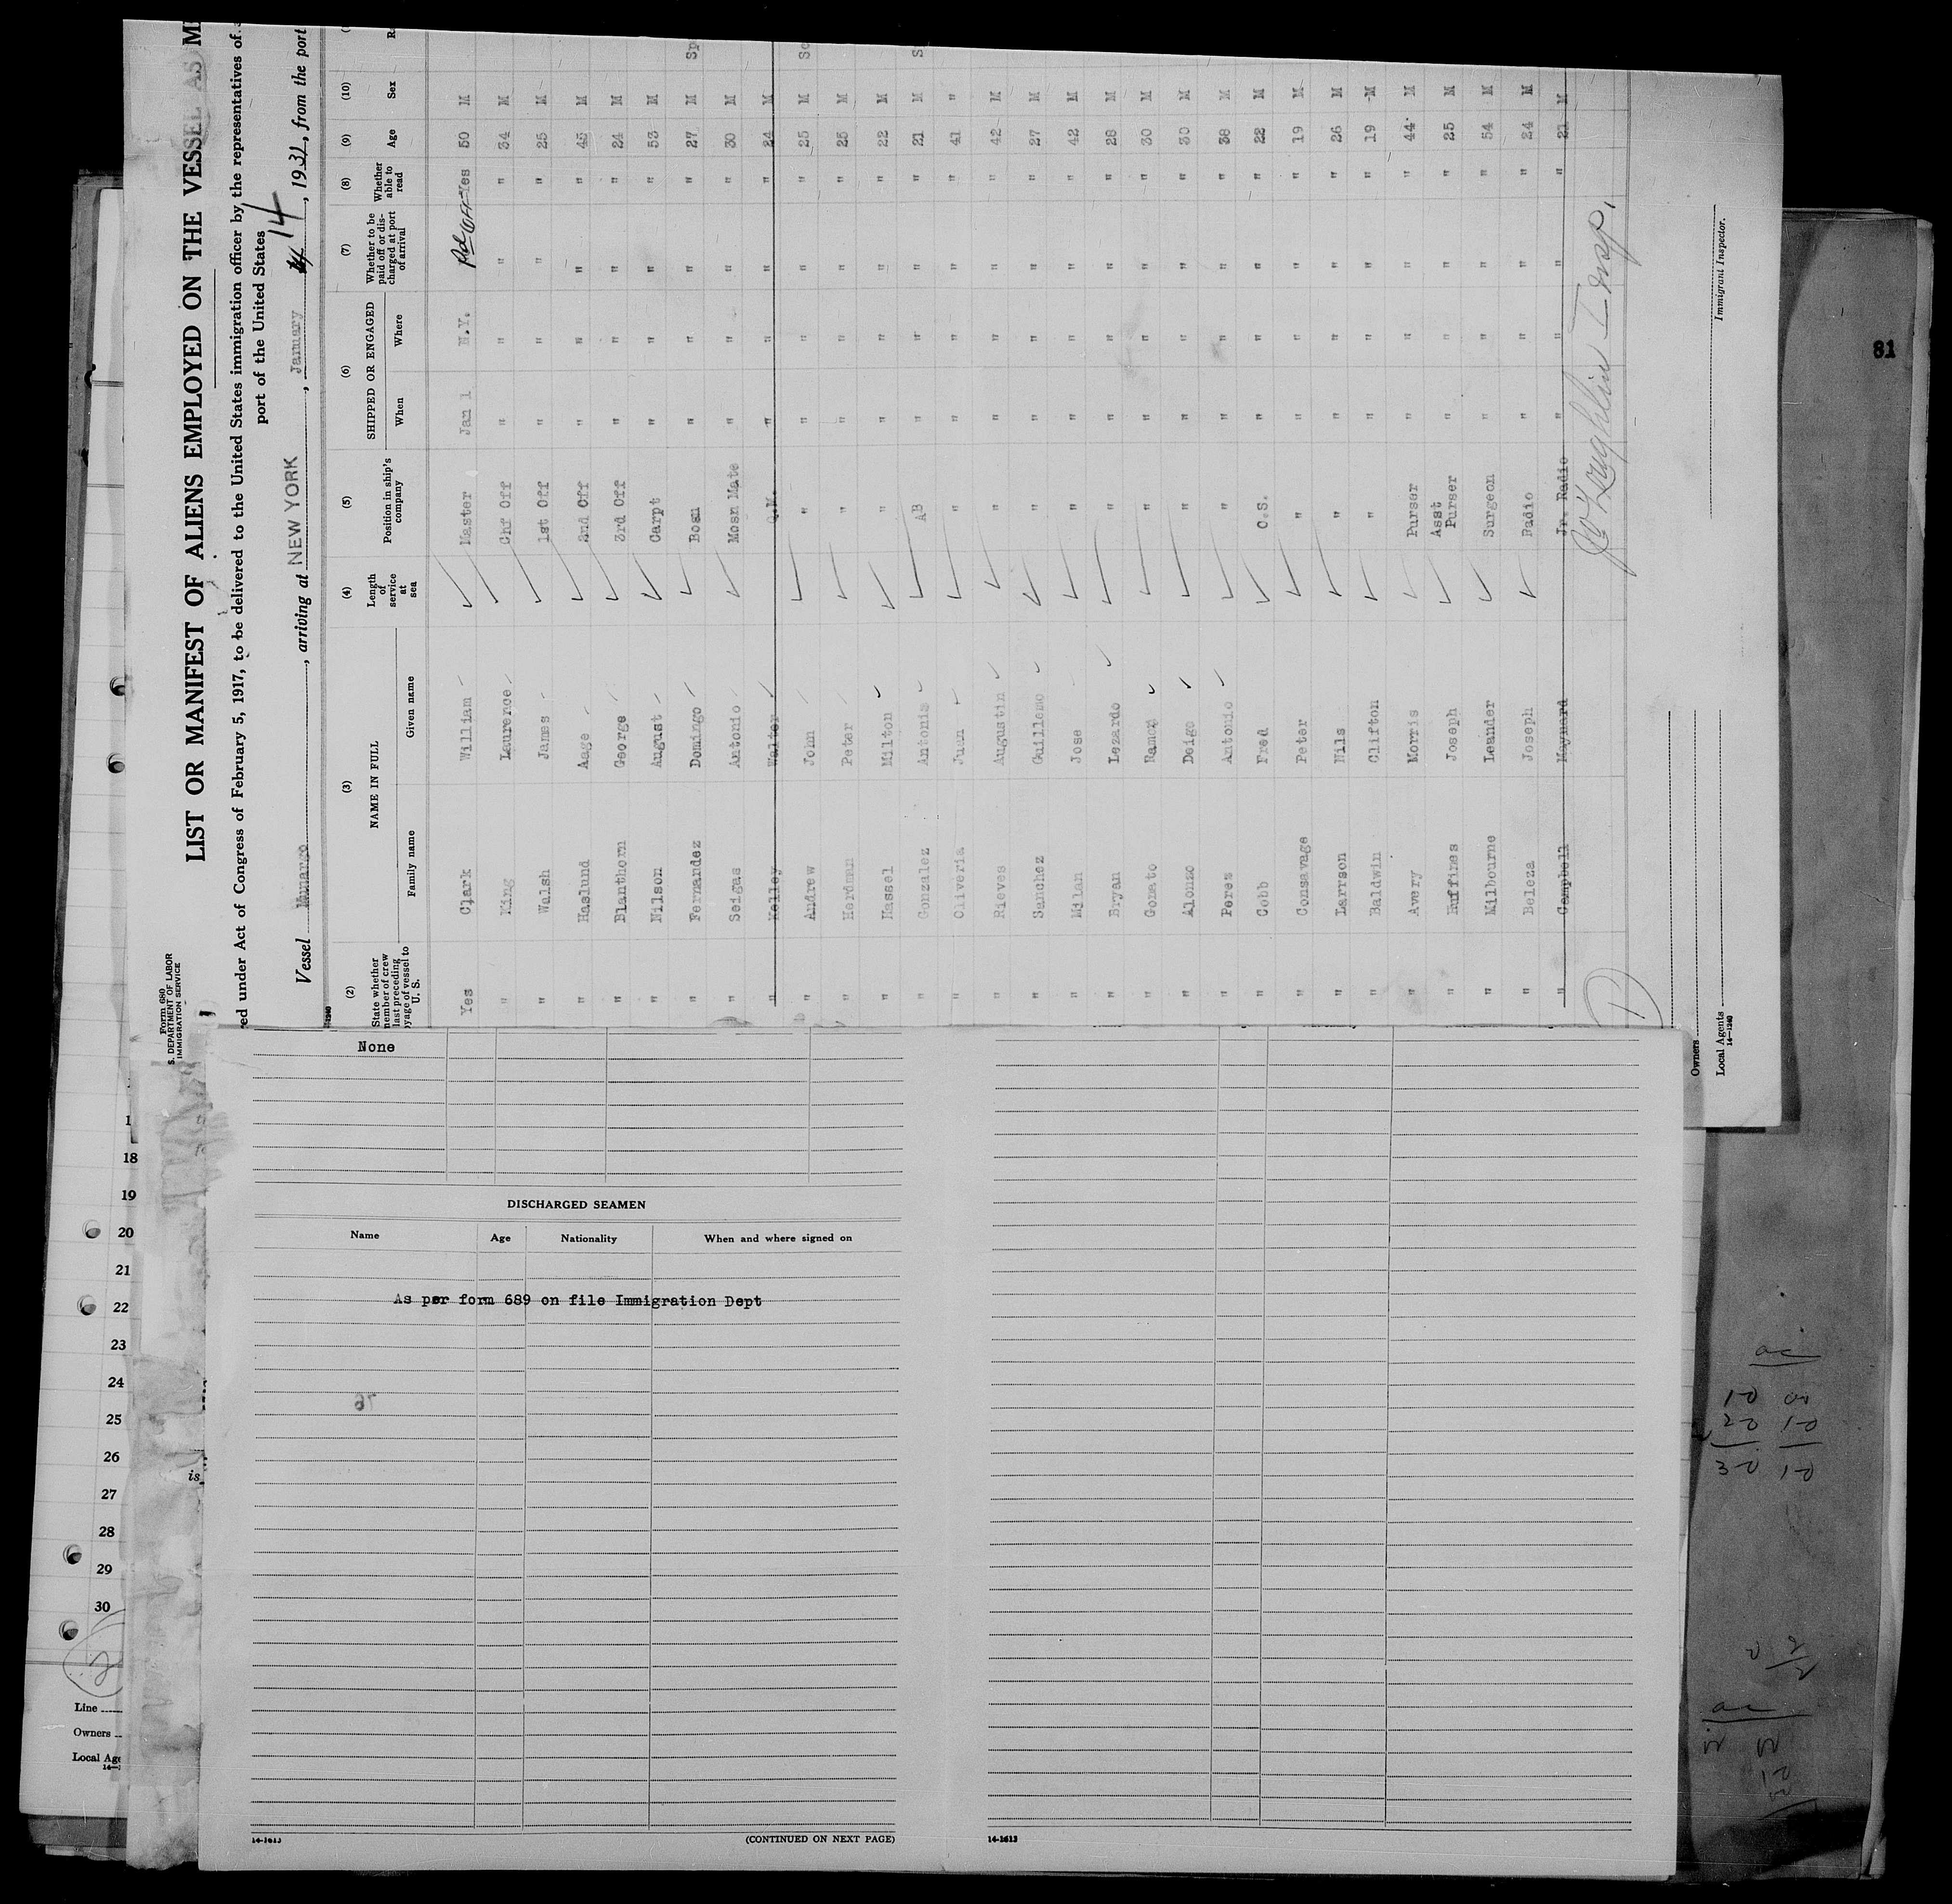 Form 680
S. DEPARTMENT OF LABOR
IMMIGRATION SERVICE
LIST OR MANIFEST OF ALIENS EMPLOYED ON THE VESSEL AS M
ed under Act of Congress of February 5, 1917, to be delivered to the United States immigration officer by the representatives of
port of the United States
Vessel Munargo, arriving at NEW YORK, January 14, 1931, from the port
(2) (3) (4) (5) (6) (7) (8) (9) (10)
State whether member of crew last preceding voyage of vessel to U. S. NAME IN FULL Family name Given name Length of service at sea Position in ship's company SHIPPED OR ENGAGED When Where Whether to be paid off or discharged at port of arrival Whether able to read Age Sex
Yes Clark William Master Jan 1 N.Y. Pd Off Yes 50 M
" King Laurence Chf Off " " " " 34 M
" Walsh James 1st Off " " " " 25 M
" Haslund Aage 2nd Off " " " " 45 M
" Blanthorn George 3rd Off " " " " 24 M
" Nilson August Carpt " " " " 53 M
" Fernandez Domingo Bosn " " " " 27 M Sp
" Seigas Antonio Mosn Mate " " " " 30 M
" Kelley Walter Q.M. " " " " 24 M
" Andrew John " " " " " 25 M Sc
" Herdman Peter " " " " " 25 M
" Hassel Milton " " " " " 22 M
" Gonzalez Antonio AB " " " " 21 M S
" Oliveria Juan " " " " " 41 "
" Rieves Augustin " " " " " 42 M
" Sanchez Guillemo " " " " " 27 M
" Milan Jose " " " " " 42 M
" Bryan Lezardo " " " " " 28 M
" Gomato Ramon " " " " " 30 M
" Alonzo Deigo " " " " " 30 M
" Perez Antonio " " " " " 38 M
" Cobb Fred O.S. " " " " 22 M
" Consavage Peter " " " " " 19 M
" Larrson Nils " " " " " 26 M
" Baldwin Clifton " " " " " 19 M
" Avery Morris Purser " " " " 44 M
" Huffines Joseph Asst Purser " " " " 25 M
" Milbourne Leander Surgeon " " " " 54 M
" Beleza Joseph Radio " " " " 24 M
" Campbell Maynard Jr. Radio " " " " 21 M
Immigrant Inspector.
Owners
Local Agents
14-1240
81
None
DISCHARGED SEAMEN
Name Age Nationality When and where signed on
As per form 689 on file Immigration Dept
14-1613 (CONTINUED ON NEXT PAGE)
14-1613
18
19
20
21
22
23
24
25
26
is
27
28
29
30
2
Line
Owners
Local Age